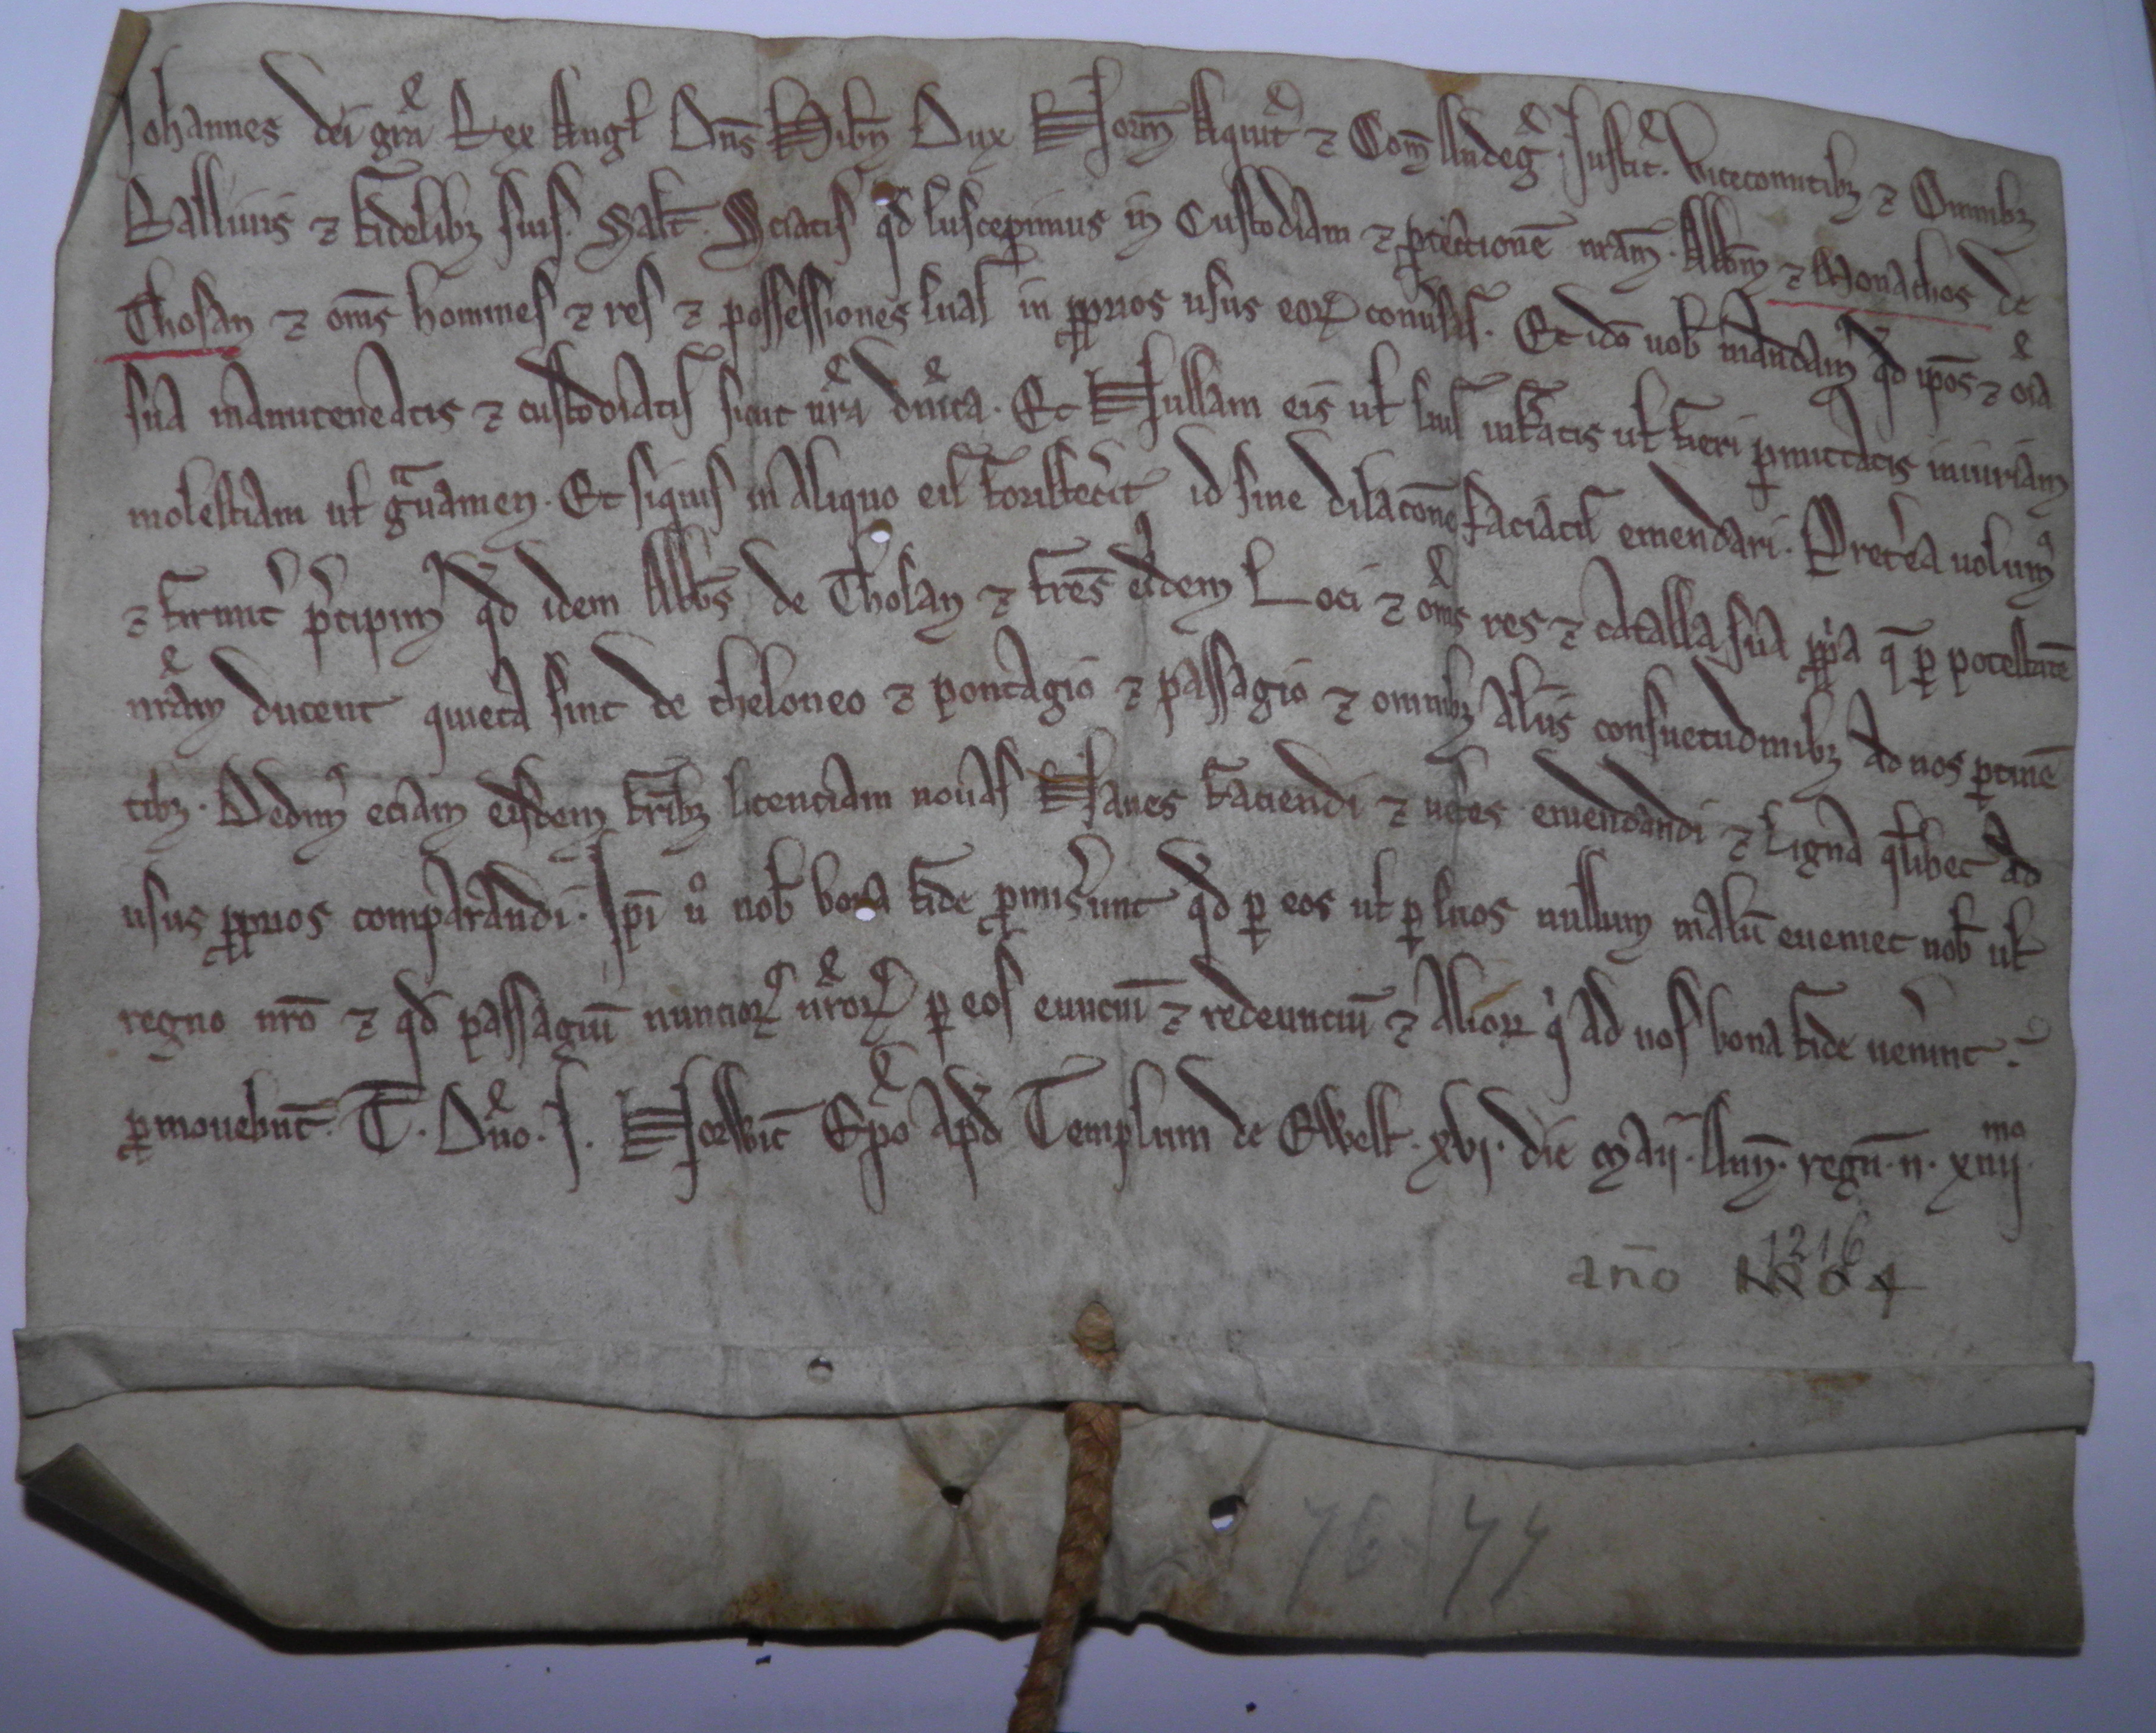 Johannes dei gr̄a Rex Angl Dn̄s Hib̄n Dux Norm̄ Aquit̄ ⁊ Com̄ Andeḡ. Justic̄. Vicecomitibꝫ ⁊ Omnibꝫ
Ballivis ⁊ fidelibꝫ suis. Salt̄. Sciatis qd̄ suscepimus in Custodiam ⁊ ꝓtectionē nr̄am. Abb̄m ⁊ Monachos de
Thosan ⁊ om̄s homines ⁊ res ⁊ possessiones suas in ꝓprios usus eoꝝ conu̓sas. Et idō uob̄ mandam᾽ qd̄ ip̄os ⁊ oı̄a
sua manuteneatis ⁊ custodiatis sicut nr̄a dn̄ica. Et Nullam eis ul̄ suis inferatis ul̄ fieri ꝑmittatis iniuriam
molestiam ul̄ gͣuamen. Et siquis in aliquo eis forisfec̓it id sine dilacōne faciatis emendari. Pret̓ea uolum᾽
⁊ firmit̓ p̓cipim᾽ qd̄ idem Abb̄s de Thosan ⁊ fr̄es eiꝰdem Loci ⁊ om̄s res ⁊ catalla sua ꝓpͥa q̄ ꝑ potestatē
nr̄am ducent quieta sint de theloneo ⁊ pontagio ⁊ passagio ⁊ omnibꝫ aliis consuetudinibꝫ ad nos ꝑtinē
tibꝫ. Dedim᾽ eciam eisdem fr̄ibꝫ licenciam nouas Naues faciendi ⁊ uet̓es emendandi ⁊ Ligna q̄libet ad
usus ꝓprios comparandi. Ip̄i ů nob̄ bona fide ꝓmis̓unt qd̄ ꝑ eos ul̄ ꝑ suos nullum malū eueniet nob̄ ul̄
regno nr̄o ⁊ qd̄ passagiū nuncioꝝ nr̄oꝝ ꝑ eos eunciū ⁊ redeunciū ⁊ alioꝝ qͥ ad nos bona fide uen̓int.
ꝓmouebūt. T. Dn̄o. J. Norwic̄ Ep̄o apd̄ Templum de Ewell. xvj. die Maij. Ann̄. regn̄. n. xiiijmo
an̄o 1204 1216
76 44